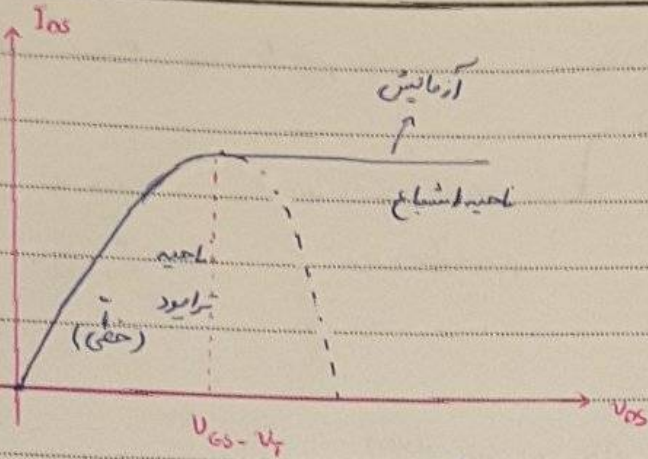 I_DS
آزمایش
ناحیه اشباع
ناحیه
ترایود
(خطی)
V_GS - V_T
V_DS